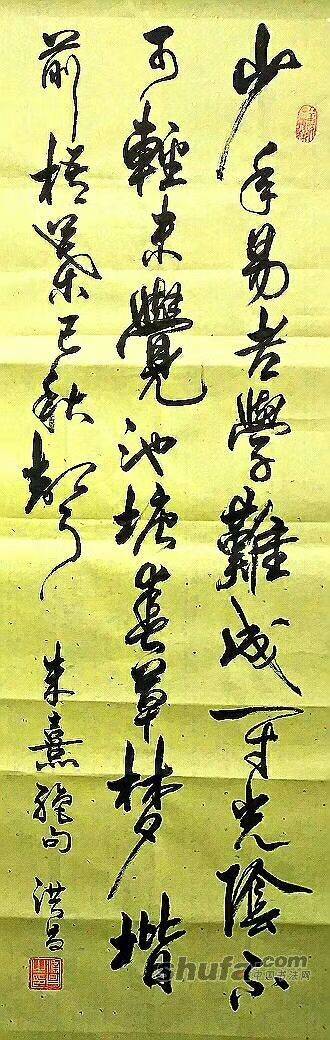 少年易老学難成一寸光陰不
可輕未覺池塘春草梦堦
前梧葉已秋声
朱熹絶句 洪昌
shufa.com
中国书法网